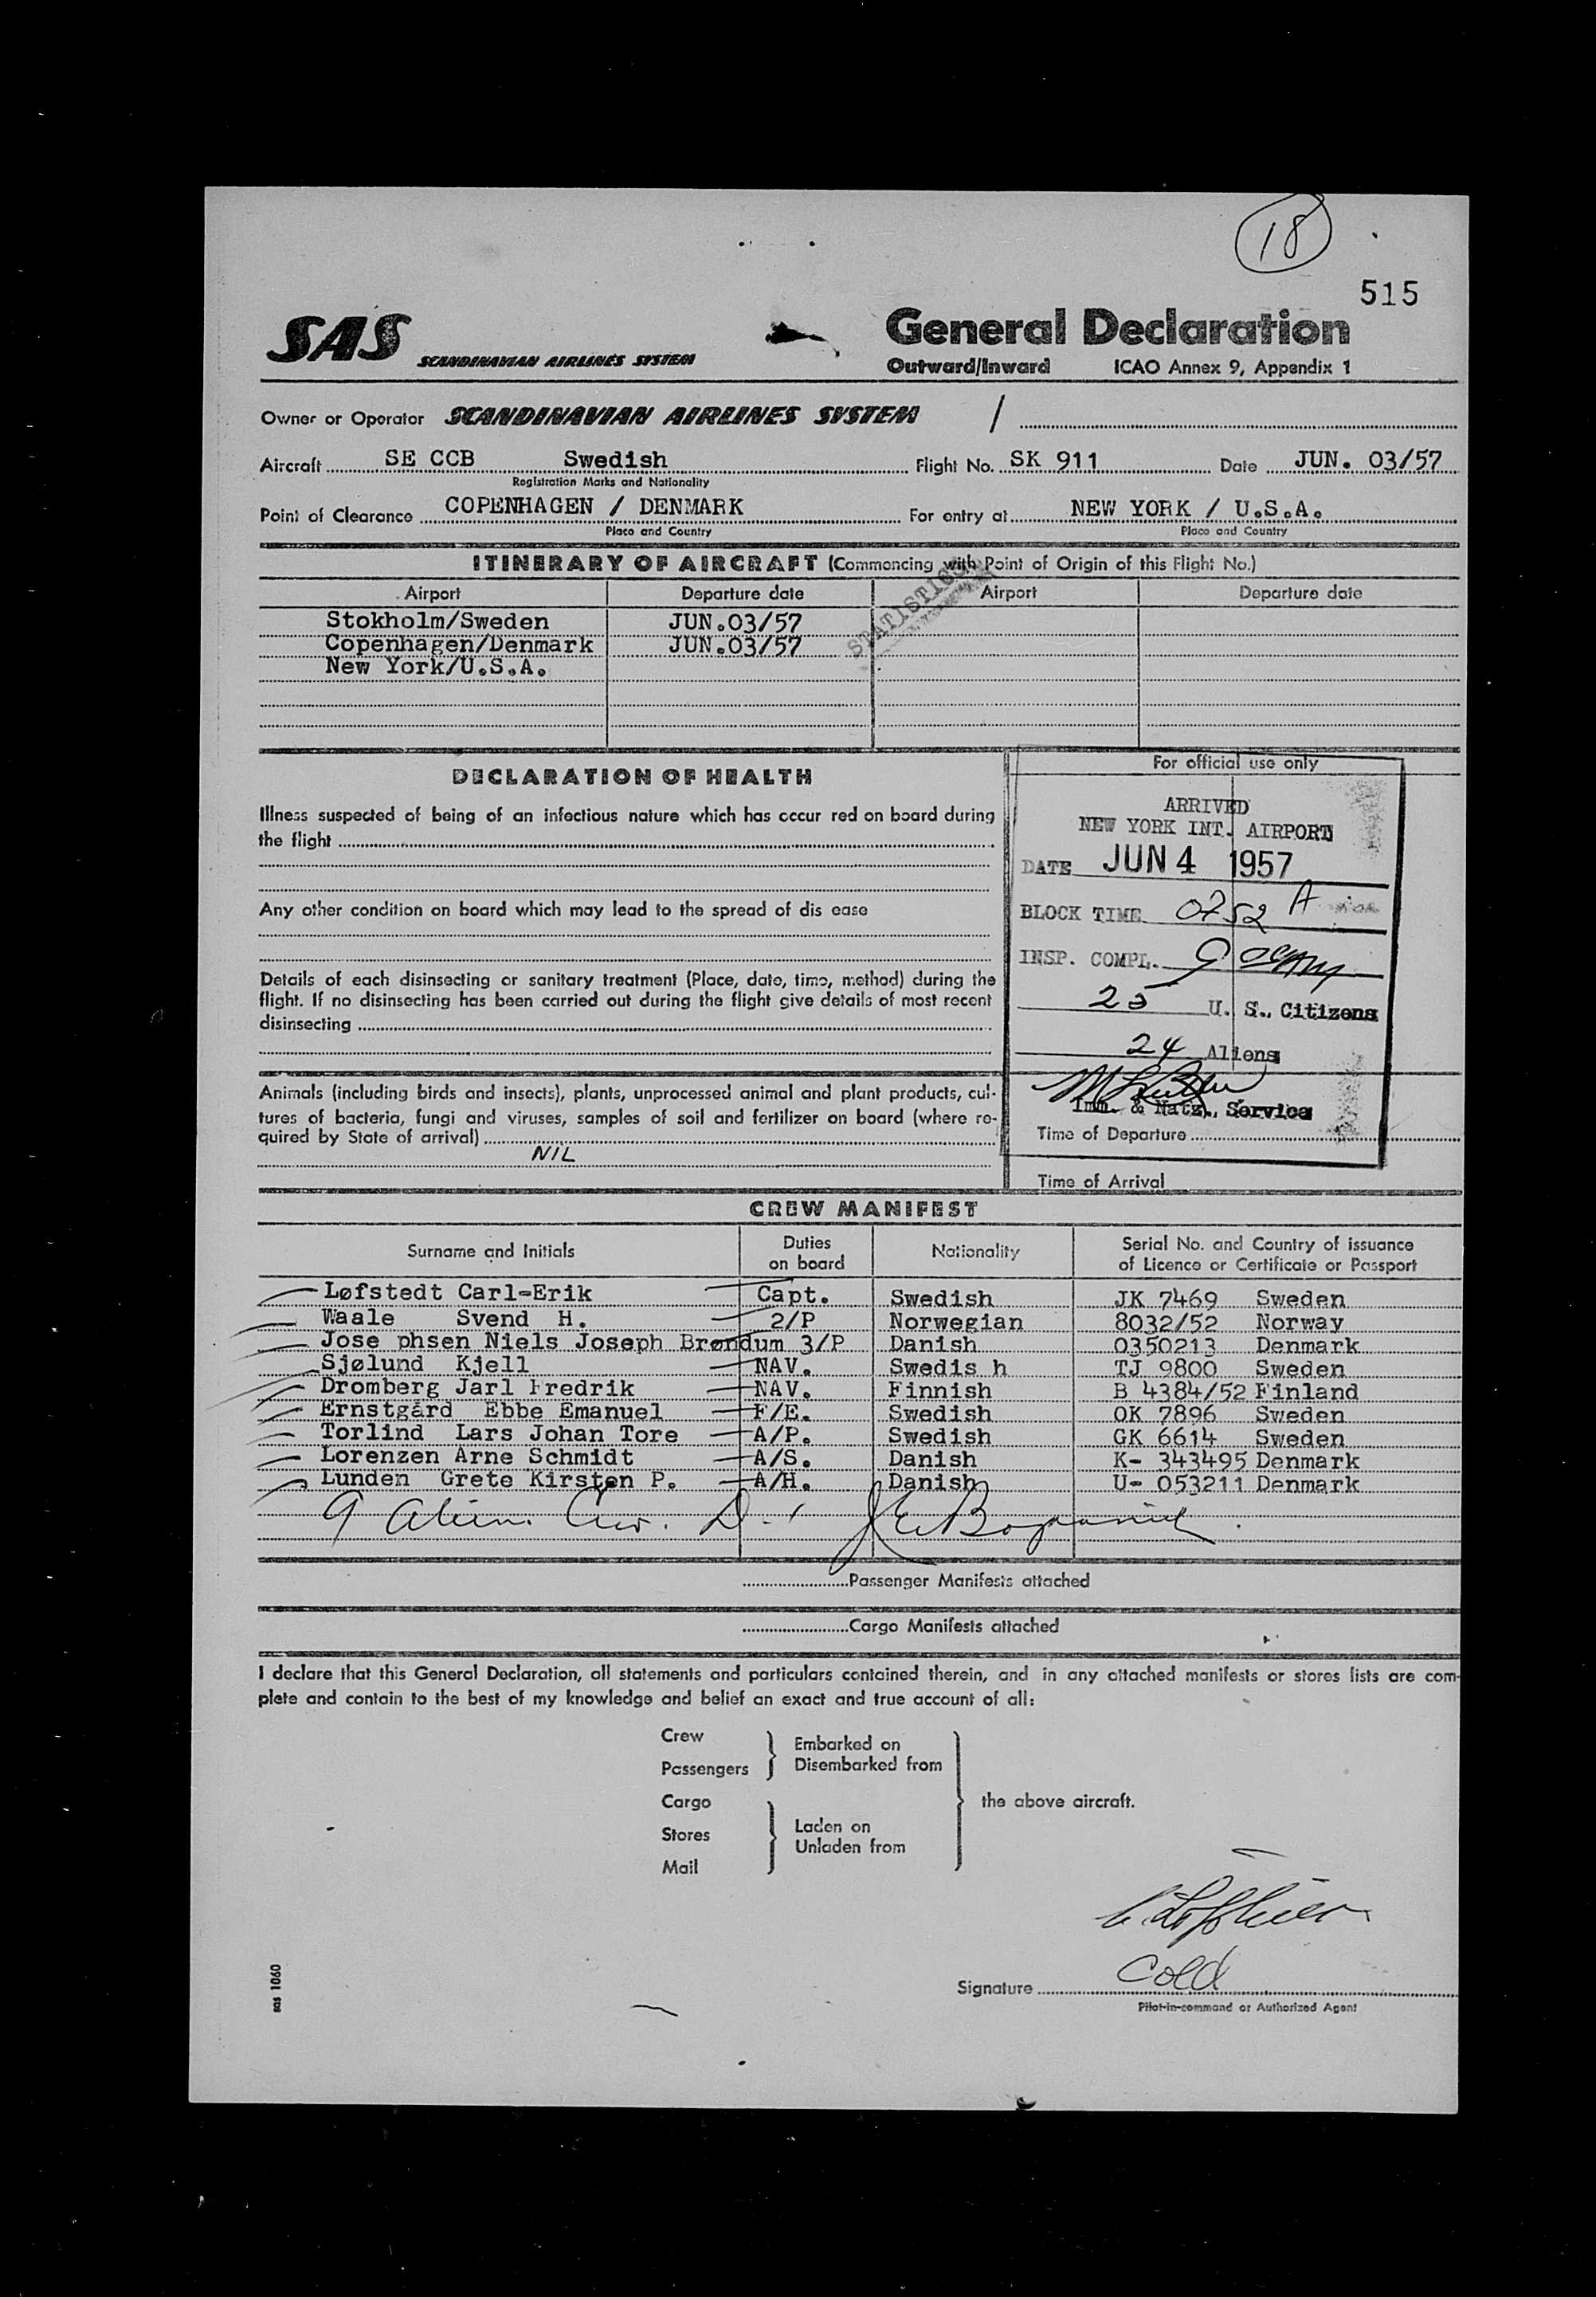 18
515
SAS SCANDINAVIAN AIRLINES SYSTEM
General Declaration
Outward/Inward ICAO Annex 9, Appendix 1
Owner or Operator SCANDINAVIAN AIRLINES SYSTEM /
Aircraft SE CCB Swedish Flight No. SK 911 Date JUN. 03/57
Registration Marks and Nationality
Point of Clearance COPENHAGEN / DENMARK For entry at NEW YORK / U.S.A.
Place and Country Place and Country
ITINERARY OF AIRCRAFT (Commencing with Point of Origin of this Flight No.)
STATISTICS
Airport Departure date Airport Departure date
Stokholm/Sweden JUN.03/57
Copenhagen/Denmark JUN.03/57
New York/U.S.A.
DECLARATION OF HEALTH
Illness suspected of being of an infectious nature which has occur red on board during
the flight
Any other condition on board which may lead to the spread of dis ease
Details of each disinsecting or sanitary treatment (Place, date, time, method) during the
flight. If no disinsecting has been carried out during the flight give details of most recent
disinsecting
Animals (including birds and insects), plants, unprocessed animal and plant products, cul-
tures of bacteria, fungi and viruses, samples of soil and fertilizer on board (where re-
quired by State of arrival)
NIL
For official use only
ARRIVED
NEW YORK INT. AIRPORT
DATE JUN 4 1957
BLOCK TIME 0752 A
INSP. COMPL.
25 U. S. Citizens
24 Aliens
Imm. & Natz. Service
Time of Departure
Time of Arrival
CREW MANIFEST
Surname and Initials Duties on board Nationality Serial No. and Country of issuance of Licence or Certificate or Passport
Løfstedt Carl-Erik Capt. Swedish JK 7469 Sweden
Waale Svend H. 2/P Norwegian 8032/52 Norway
Jose phsen Niels Joseph Brøndum 3/P Danish 0350213 Denmark
Sjølund Kjell NAV. Swedis h TJ 9800 Sweden
Dromberg Jarl Fredrik NAV. Finnish B 4384/52 Finland
Ernstgård Ebbe Emanuel F/E. Swedish OK 7896 Sweden
Torlind Lars Johan Tore A/P. Swedish GK 6614 Sweden
Lorenzen Arne Schmidt A/S. Danish K- 343495 Denmark
Lunden Grete Kirsten P. A/H. Danish U- 053211 Denmark
9 Alien
Passenger Manifests attached
Cargo Manifests attached
I declare that this General Declaration, all statements and particulars contained therein, and in any attached manifests or stores lists are com-
plete and contain to the best of my knowledge and belief an exact and true account of all:
Crew
Passengers
Embarked on
Disembarked from
Cargo
Stores
Mail
Laden on
Unladen from
the above aircraft.
Signature
Pilot-in-command or Authorized Agent
sas 1060